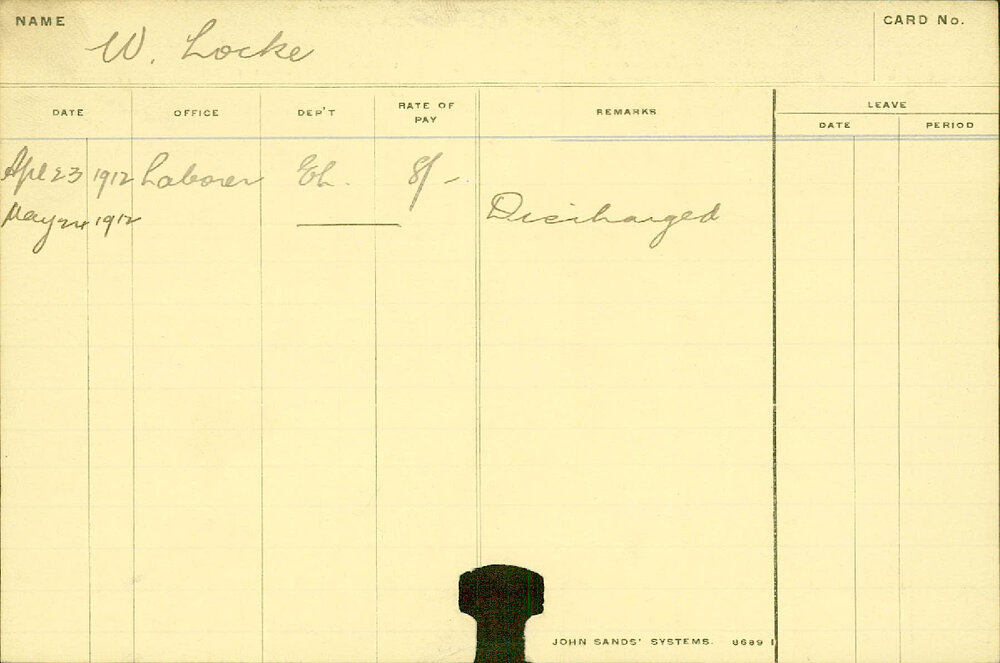 NAME W. Locke CARD No.
DATE OFFICE DEP'T RATE OF PAY REMARKS LEAVE
DATE PERIOD
Apl 23 1912 Laborer EL. 8/-
May 24 1912 Discharged
JOHN SANDS' SYSTEMS. 8689